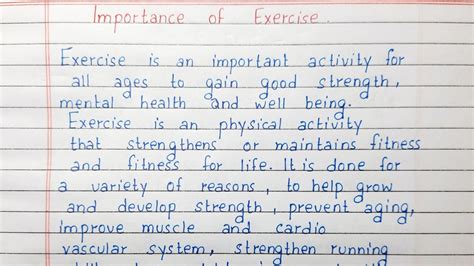 Importance of Exercise.
Exercise is an important activity for
all ages to gain good strength,
mental health and well being.
Exercise is an physical activity
that strengthens or maintains fitness
and fitness for life. It is done for
a variety of reasons, to help grow
and develop strength, prevent aging,
improve muscle and cardio
vascular system, strengthen running